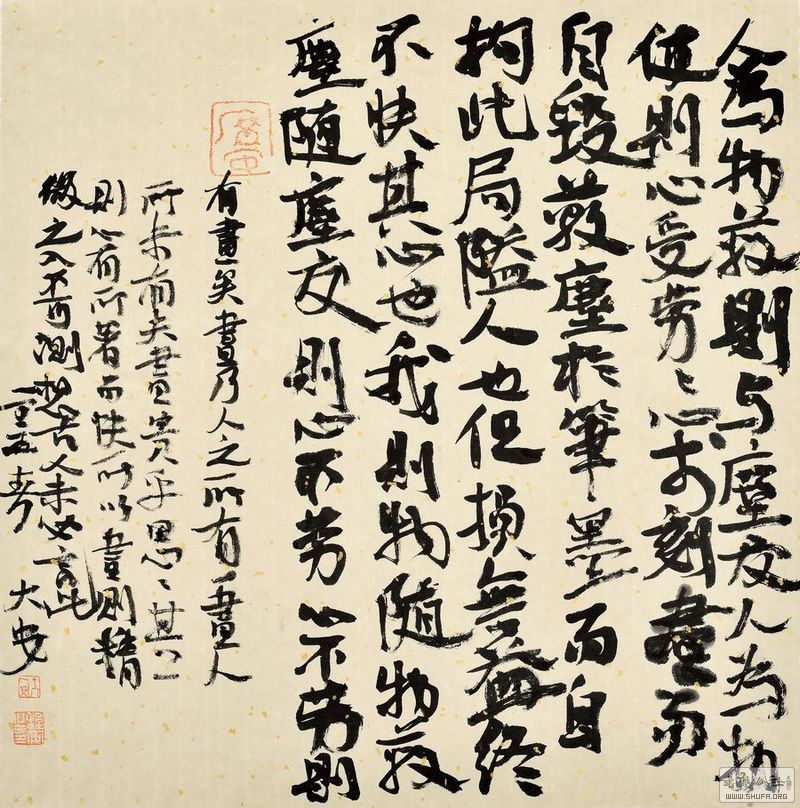 人為物蔽則与塵交人為物
使則心受勞〻心於刻畫而
自毀蔽塵於筆墨而自
拘此局隘人也但損無益終
不快其心也我則物隨物蔽
塵隨塵交則心不劳心不劳則
有畫矣畫乃人之所有一畫人
所未有夫畫貴乎思〻其一
則心有所著而快所以畫則精
微之入不可測想古人未必言此
春 大安
WWW.SHUFA.ORG